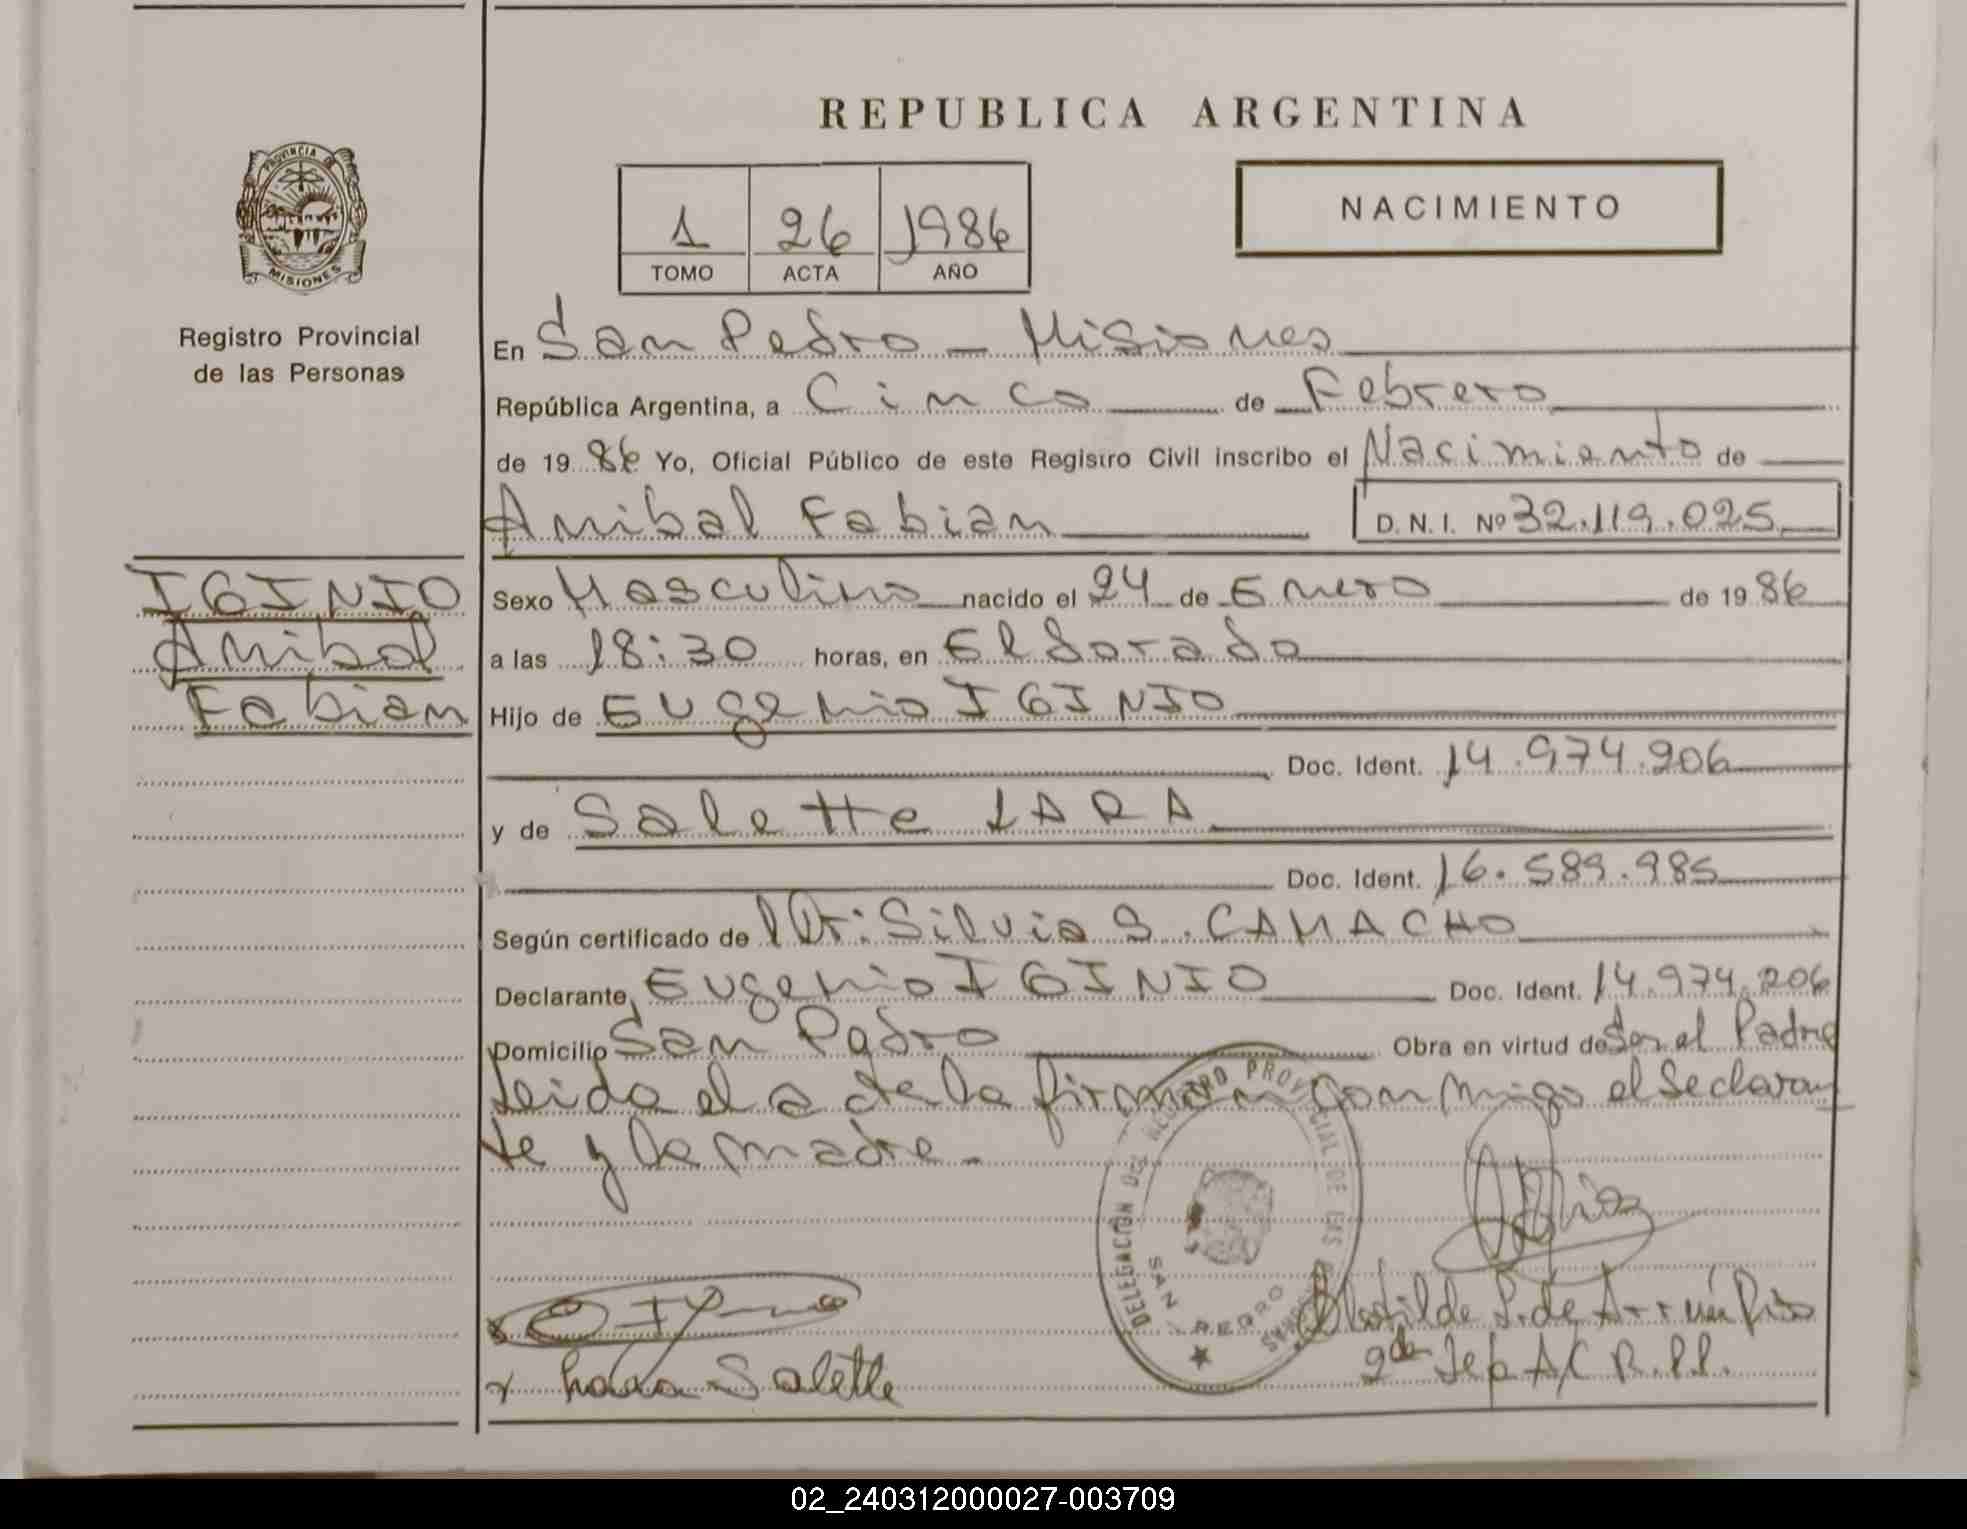 REPUBLICA ARGENTINA
PROVINCIA DE
MISIONES
Registro Provincial
de las Personas
1 26 1986
TOMO ACTA AÑO
NACIMIENTO
En San Pedro - Misiones
República Argentina, a Cinco de Febrero
de 19 86 Yo, Oficial Público de este Registro Civil inscribo el Nacimiento de
Anibal Fabian D.N.I. Nº 32.119.025
IGINIO
Anibal
Fabian
Sexo Masculino nacido el 24 de Enero de 19 86
a las 18:30 horas, en Eldorado
Hijo de Eugenio IGINIO
Doc. Ident. 14.974.206
y de Salette LARA
Doc. Ident. 16.589.985
Según certificado de Dr: Silvia S. CAMACHO
Declarante, Eugenio IGINIO Doc. Ident. 14.974.206
Domicilio San Pedro Obra en virtud de Ser el Padre
Leida el acta la firman conmigo el declaran
te y la madre.-
DELEGACIÓN DEL REGISTRO PROVINCIAL DE LAS PERSONAS
SAN PEDRO
Lara Salette
02_240312000027-003709